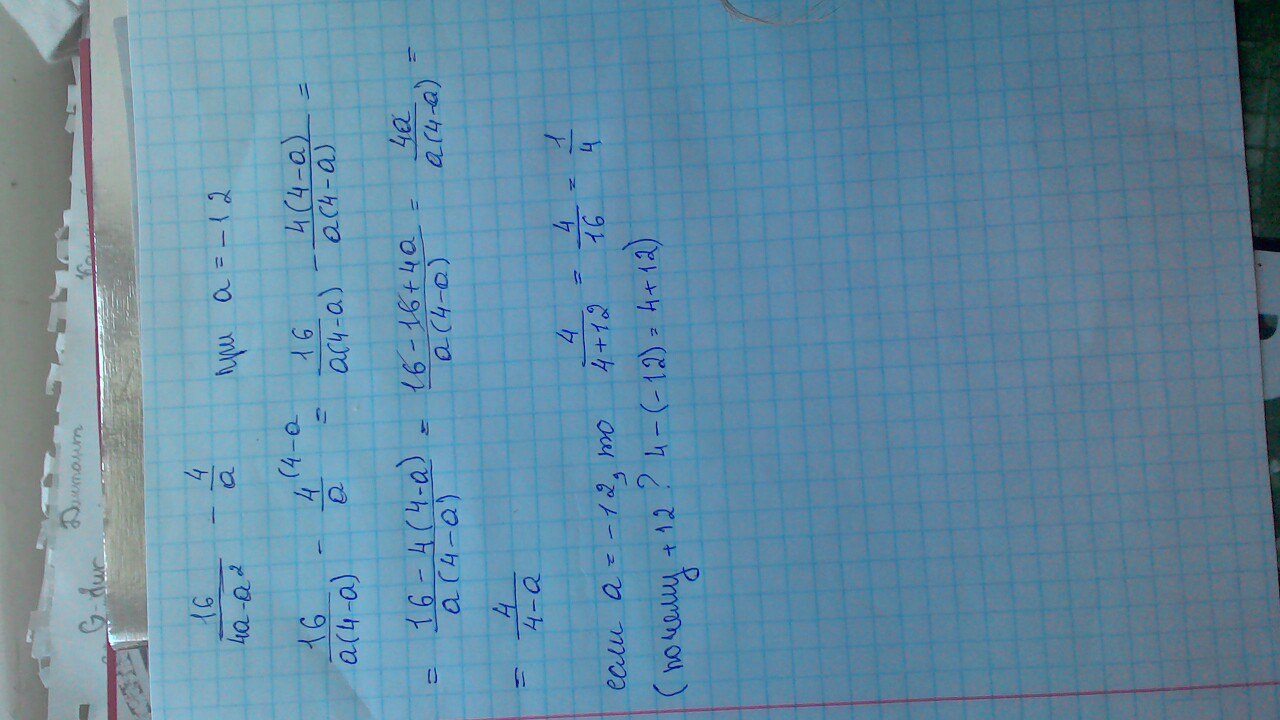 16/(4a-a²) - 4/a при a = -12
16/(a(4-a)) - 4/a (4-a = 16/(a(4-a)) - 4(4-a)/(a(4-a)) =
= (16-4(4-a))/(a(4-a)) = (16-16+4a)/(a(4-a)) = 4a/(a(4-a)) =
= 4/(4-a)
если a = -12, то 4/(4+12) = 4/16 = 1/4
(почему +12? 4-(-12) = 4+12)
Диктант